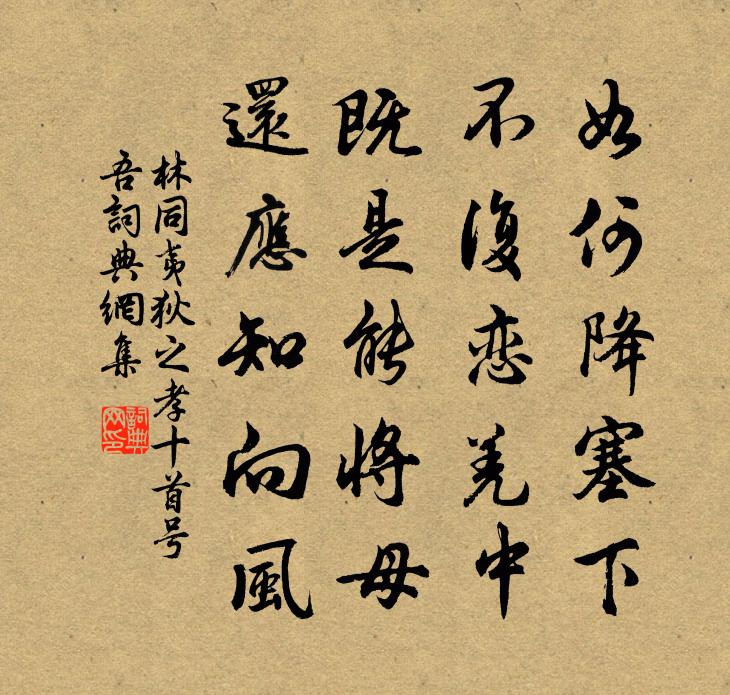 如何降塞下
不復恋羌中
既是能將母
還應知向風
林同夷狄之孝十首号
吾詞典網集
詞典网印